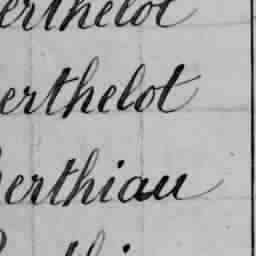 erthelot
erthelot
erthiau